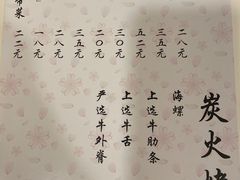 二八元
三五元
五二元
三〇元
二〇元
三五元
二八元
一八元
二二元
菜
炭火
海螺
上选牛肋条
上选牛舌
严选牛外脊